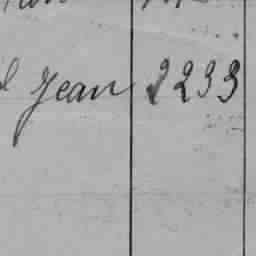 Jean 2233